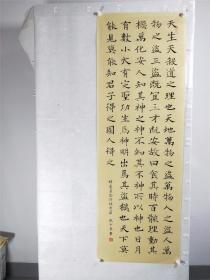 天生天殺道之理也天地萬物之盜萬物人之盜人萬
物之盜三盜既宜三才既安故曰食其時百骸理動其
機萬化安人知其神之神不知其不神所以神也日月
有數小大有定聖功生焉神明出焉其盜機也天下莫
能見莫能知君子得之固人得之